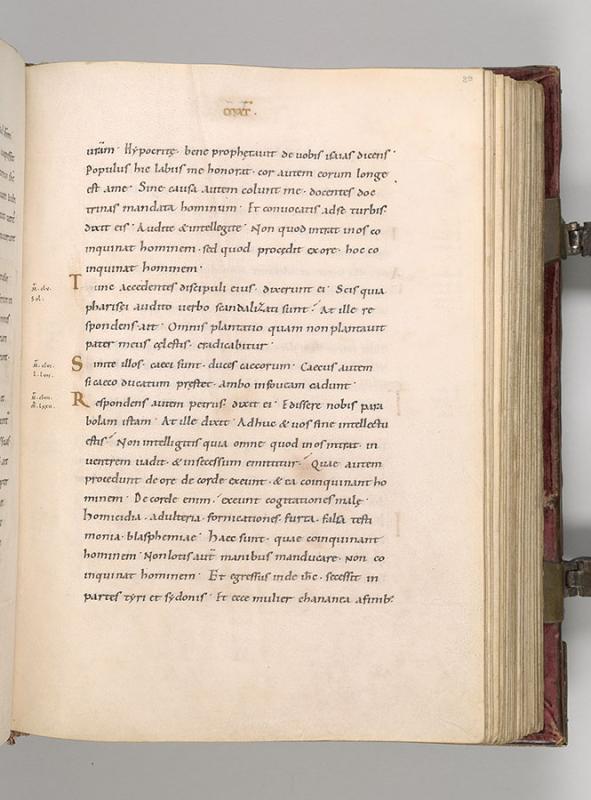 MAT.
89
uram. Hypocritę. bene prophetavit de vobis isaias dicens.
Populus hic labiis me honorat. cor autem eorum longe
est a me. Sine causa autem colunt me. docentes doc
trinas mandata hominum. Et convocatis ad se turbis.
dixit eis. Audite & intellegite. Non quod intrat in os co
inquinat hominem. sed quod procędit ex ore. hoc co
inquinat hominem.
Tunc accedentes discipuli eius. dixerunt ei. Scis quia
pharisęi audito verbo scandalizati sunt? At ille re
spondens. ait. Omnis plantatio quam non plantavit
pater meus cęlestis. eradicabitur.
Sinite illos. caeci sunt. duces caecorum. Caecus autem
si caeco ducatum pręstet. ambo in foveam cadunt.
Respondens autem petrus. dixit ei. Edissere nobis para
bolam istam. At ille dixit. Adhuc & vos sine intellectu
estis? Non intelligitis quia omne quod in os intrat. in
ventrem vadit. & in secessum emittitur? Quae autem
procedunt de ore de corde exeunt. & ea coinquinant ho
minem. De corde enim. exeunt cogitationes malę.
homicidia. adulteria. fornicationes. furta. falsa testi
monia. blasphemiae. Haec sunt. quae coinquinant
hominem. Non lotis aut̄ manibus manducare. non co
inquinat hominem. Et egressus inde ih̄c. secessit in
partes tyri et sydonis. Et ecce mulier chananea a finib;